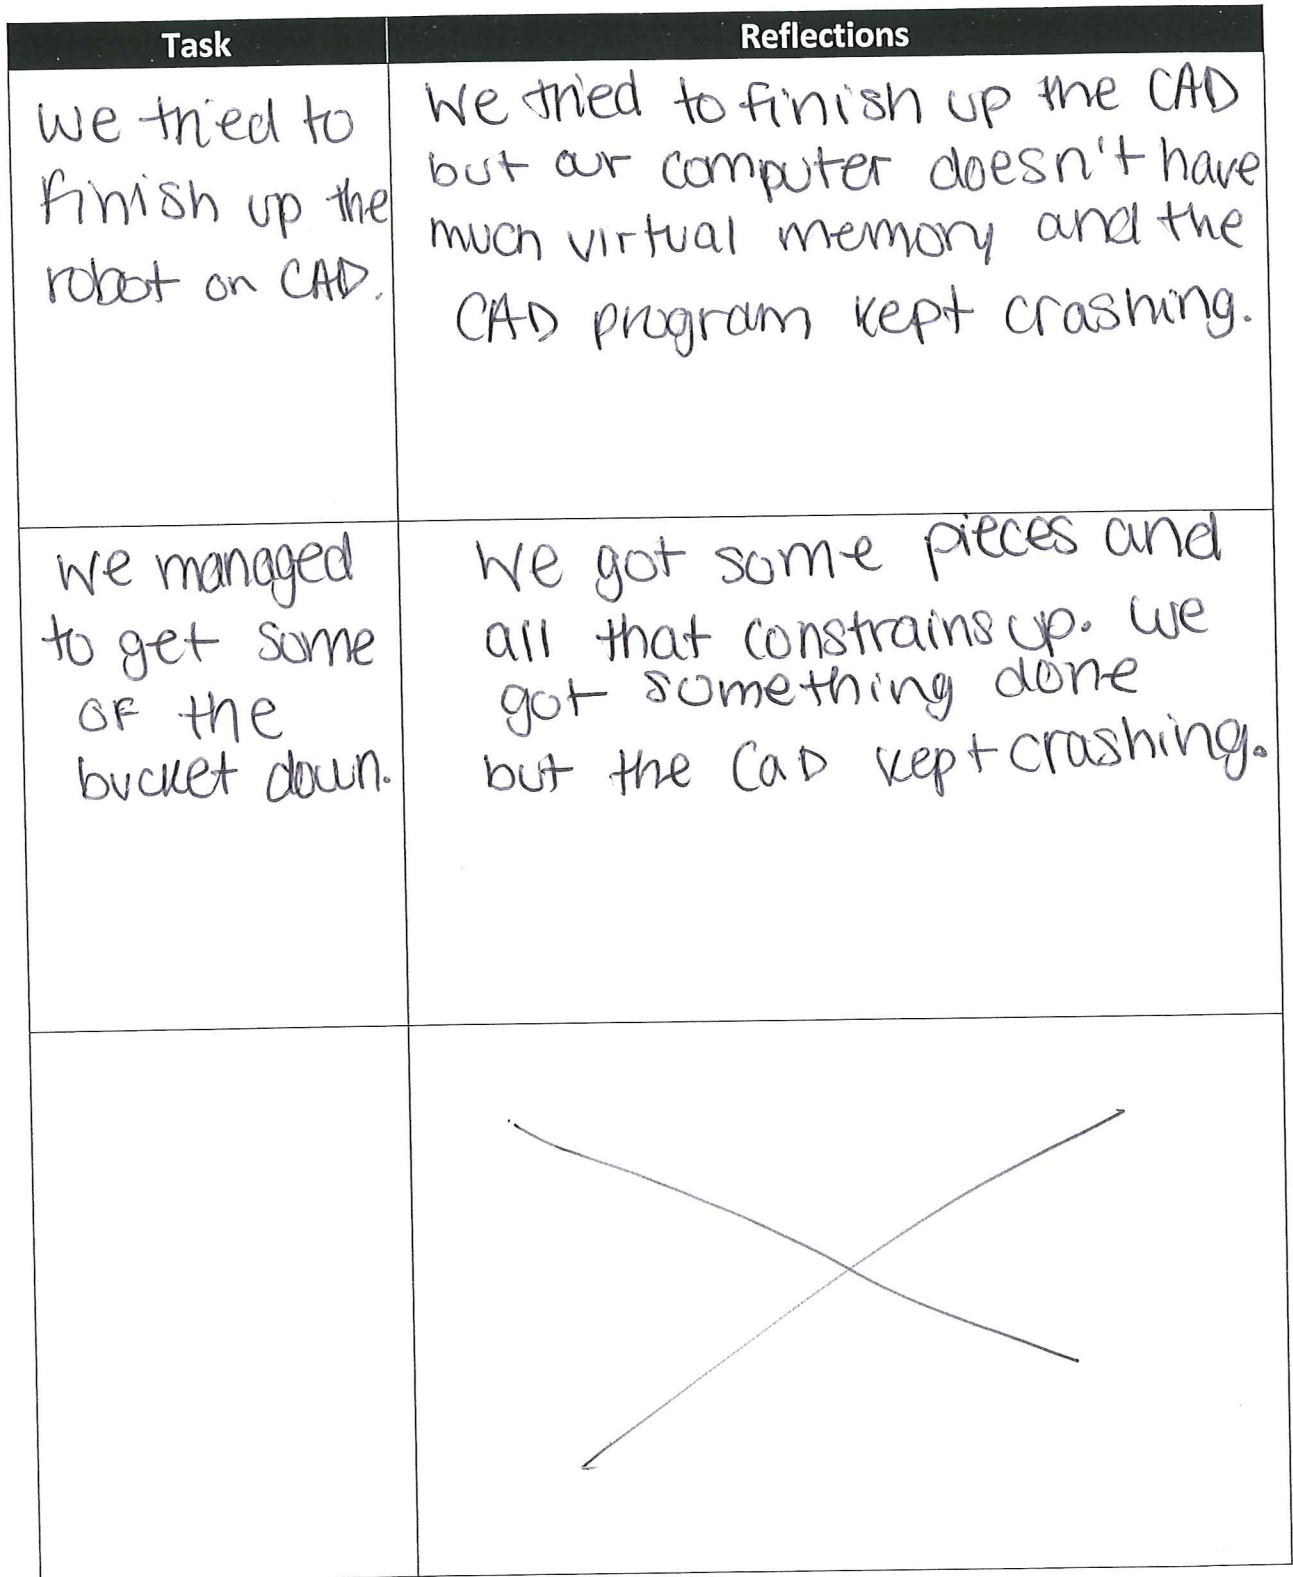 Task
Reflections
We tried to
finish up the
robot on CAD.
We tried to finish up the CAD
but our computer doesn't have
much virtual memory and the
CAD program kept crashing.
We managed
to get some
of the
bucket down.
We got some pieces and
all that constrains up. We
got something done
but the CaD kept crashing.